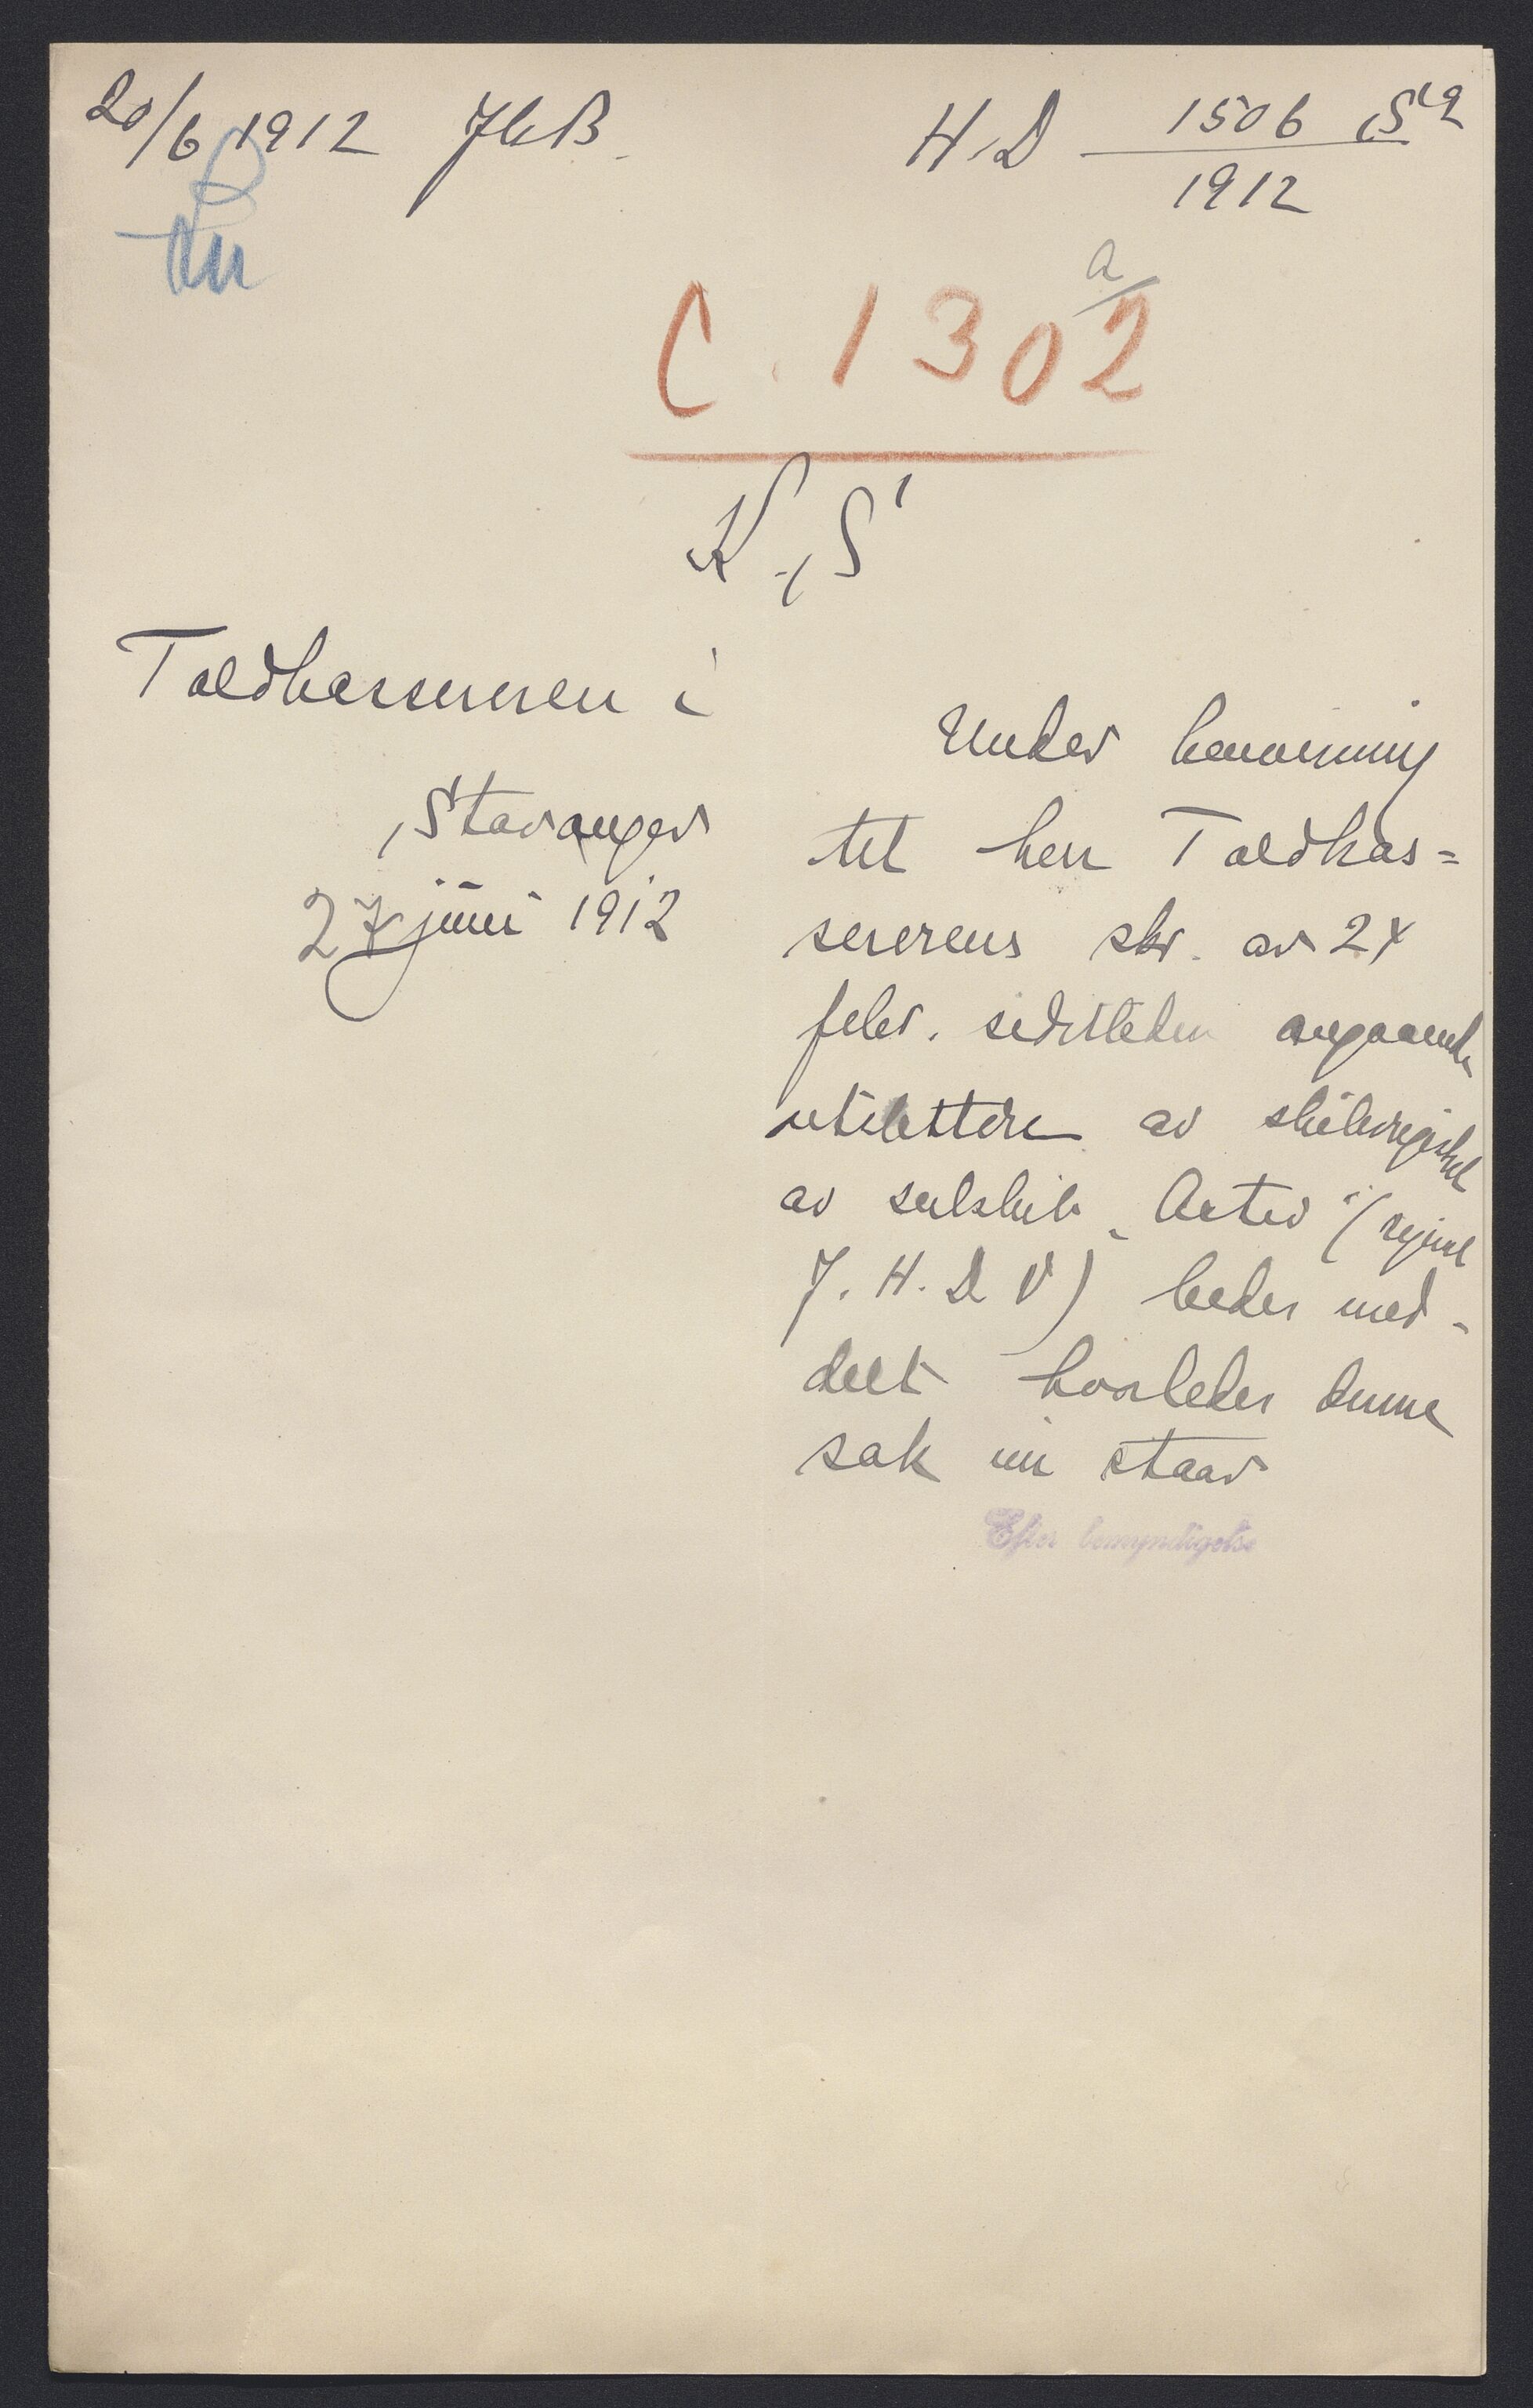 20/6 1912 JHB.
H.D 1506 S 19
1912
a
C. 1302
K. S
Toldkassereren i
Stavanger
27 juni 1912
Under henvisning
til herr Toldkas=
sererens skr. av 24
febr. sidstleden angaaende
utslettelse av skibsregistret
av seilskib "Activ" (kjend
J.H.D.V) bedes med-
delt hvorledes denne
sak nu staar
Efter bemyndigelse